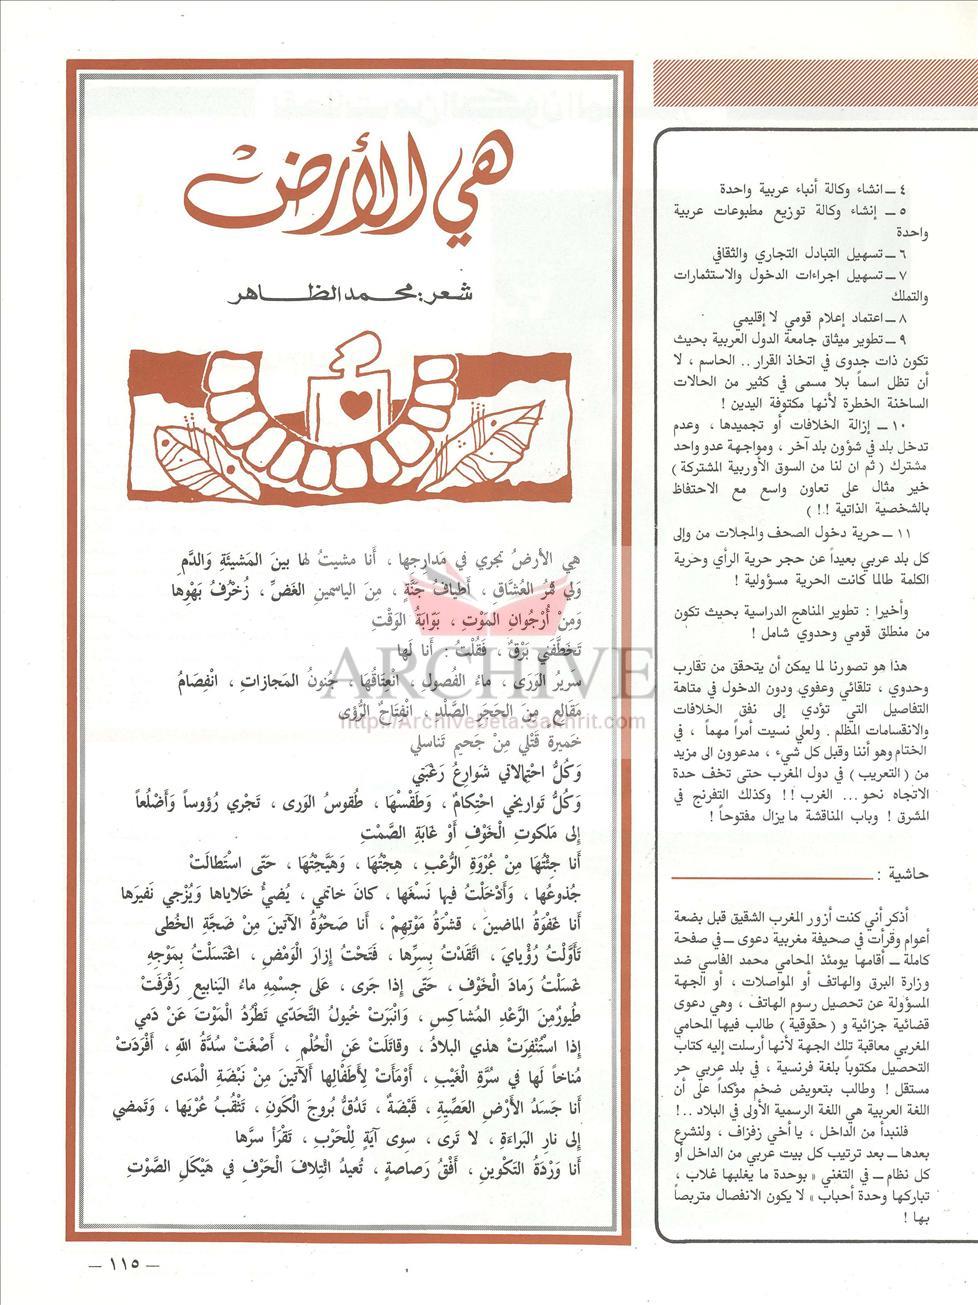 ٤ ــ انشاء وكالة أنباء عربية واحدة
٥ ــ إنشاء وكالة توزيع مطبوعات عربية
واحدة
٦ ــ تسهيل التبادل التجاري والثقافي
٧ ــ تسهيل اجراءات الدخول والاستثمارات
والتملك
٨ ــ اعتماد إعلام قومي لا إقليمي
٩ ــ تطوير ميثاق جامعة الدول العربية بحيث
تكون ذات جدوى في اتخاذ القرار .. الحاسم ، لا
أن تظل اسماً بلا مسمى في كثير من الحالات
الساخنة الخطرة لأنها مكتوفة اليدين !
١٠ ــ إزالة الخلافات أو تجميدها ، وعدم
تدخل بلد في شؤون بلد آخر ، ومواجهة عدو واحد
مشترك ( ثم ان لنا من السوق الأوربية المشتركة )
خير مثال على تعاون واسع مع الاحتفاظ
بالشخصية الذاتية ! ! )
١١ ــ حرية دخول الصحف والمجلات من وإلى
كل بلد عربي بعيداً عن حجر حرية الرأي وحرية
الكلمة طالما كانت الحرية مسؤولية !
وأخيرا : تطوير المناهج الدراسية بحيث تكون
من منطلق قومي وحدوي شامل !
هذا هو تصورنا لما يمكن أن يتحقق من تقارب
وحدوي ، تلقائي وعفوي ودون الدخول في متاهة
التفاصيل التي تؤدي إلى نفق الخلافات
والانقسامات المظلم . ولعلي نسيت أمراً مهماً ، في
الختام وهو أننا وقبل كل شيء ، مدعوون الى مزيد
من ( التعريب ) في دول المغرب حتى تخف حدة
الاتجاه نحو ... الغرب !! وكذلك التفرنج في
المشرق ! وباب المناقشة ما يزال مفتوحاً !
حاشية :
أذكر أني كنت أزور المغرب الشقيق قبل بضعة
أعوام وقرأت في صحيفة مغربية دعوى ــ في صفحة
كاملة ــ أقامها يومئذ المحامي محمد الفاسي ضد
وزارة البرق والهاتف أو المواصلات ، أو الجهة
المسؤولة عن تحصيل رسوم الهاتف ، وهي دعوى
قضائية جزائية و ( حقوقية ) طالب فيها المحامي
المغربي معاقبة تلك الجهة لأنها أرسلت إليه كتاب
التحصيل مكتوباً بلغة فرنسية ، في بلد عربي حر
مستقل ! وطالب بتعويض ضخم مؤكداً على أن
اللغة العربية هي اللغة الرسمية الأولى في البلاد ..!
فلنبدأ من الداخل ، يا أخي زفزاف ، ولنشرع
بعدها ــ بعد ترتيب كل بيت عربي من الداخل أو
كل نظام ــ في التغني « بوحدة ما يغلبها غلاب ،
تباركها وحدة أحباب » لا يكون الانفصال متربصاً
بها !
هي الأرض
شعر : محمد الظاهر
هي الأرضُ تجري في مَدارجها ، أَنا مشيتُ لها بينَ المَشيئَةِ وَالدَّمِ
وَلي ثمرُ العُشَّاقِ ، أَطيافُ جَنَّةٍ ، مِنَ الياسمينِ الغَضِّ ، زُخْرُفُ بَهْوِها
وَمِنْ أُرْجُوانِ المَوْتِ ، بَوّابَةُ الوَقْتِ
تَخَطَّفَني بَرْقٌ ، فَقُلْتُ : أَنا لَها
سريرُ الوَرى ، ماءُ الفُصولِ ، انْعِتاقُها ، جُنونُ المَجازاتِ ، انْفِصامُ
مَقَالعٍ مِنَ الحَجَرِ الصَّلْدِ ، انْفتاحُ الرُّؤى
خَميرة قَتْلي مِنْ جَحيمِ تَناسلي
وَكُلُّ احْتِمالاتي شَوارِعُ رَغْبَتي
وَكُلُّ تَواريخي احْتِكامٌ ، وَطَقْسُها ، طُقوسُ الوَرى ، تَجْري رُؤوساً وَأَضْلُعاً
إِلى مَلكوتِ الْخَوْفِ أَوْ غابَةِ الصَّمْتِ
أَنا جِئْتُها مِنْ عُرْوَةِ الرُّعْبِ ، هِجْتُها ، وَهَيَّجْتُها ، حَتّى اسْتَطالَتْ
جُذوعُها ، وَأَدْخَلْتُ فيها نَسْغَها ، كانَ خاتمي ، يُضيءُ خَلاياها وَيُزْجي نَفيرَها
أَنا غَفْوَةُ الماضينَ ، قشرَةُ مَوْتِهِمْ ، أَنا صَحْوَةُ الآتينَ مِنْ ضَجَّةِ الخُطى
تَأَوَّلْتُ رُؤْيايَ ، اتَّقَدْتُ بِسِرِّها ، فَتَحْتُ إِزارَ الْوَمْضِ ، اغْتَسَلْتُ بِمَوْجِهِ
غَسَلْتُ رَمادَ الْخَوْفِ ، حَتّى إِذا جَرى ، عَلى جِسْمِهِ ماءُ اليَنابيعِ رَفْرَفَتْ
طُيورٌ مِنَ الرَّعْدِ المُشاكِسِ ، وَانْبَرَتْ خُيولُ التَّحَدّي تَطْرُدُ الْمَوْتَ عَنْ دَمي
إِذا اسْتُنْفِرَتْ هذي البِلادُ ، وقاتَلَتْ عَنِ الْحُلْمِ ، أَضْغَتْ سُدَّةُ اللهِ ، أَفْرَدَتْ
مُناخاً لَها في سُرَّةِ الْغَيْبِ ، أَوْمَأَتْ لِأَطْفالِها الآتينَ مِنْ نَبْضَةِ الْمَدى
أَنا جَسَدُ الأَرْضِ العَصِيَّةِ ، قَبْضَةٌ ، تَدُقُّ بُروجَ الْكَونِ ، تَثْقُبُ عُرْيَها ، وَتَمضي
إِلى نارِ البَراءَةِ ، لا تَرى ، سِوى آيَةٍ لِلْحَرْبِ ، تَقْرَأُ سرَّها
أَنا وَرْدَةُ التَّكْوينِ ، أَفْقُ رَصاصةٍ ، تُعيدُ ائْتِلافَ الْحَرْفِ في هَيْكَلِ الصَّوْتِ
ARCHIVE
http://Archivebeta.Sakhrit.com
ــ ١١٥ ــ